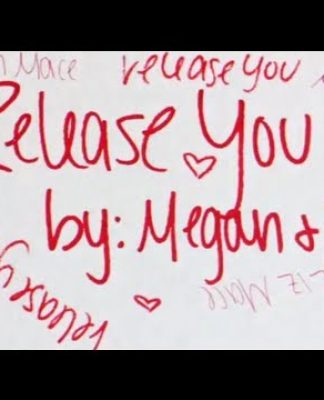 Mace release you
Release You
by: Megan &
Liz Mace
release y